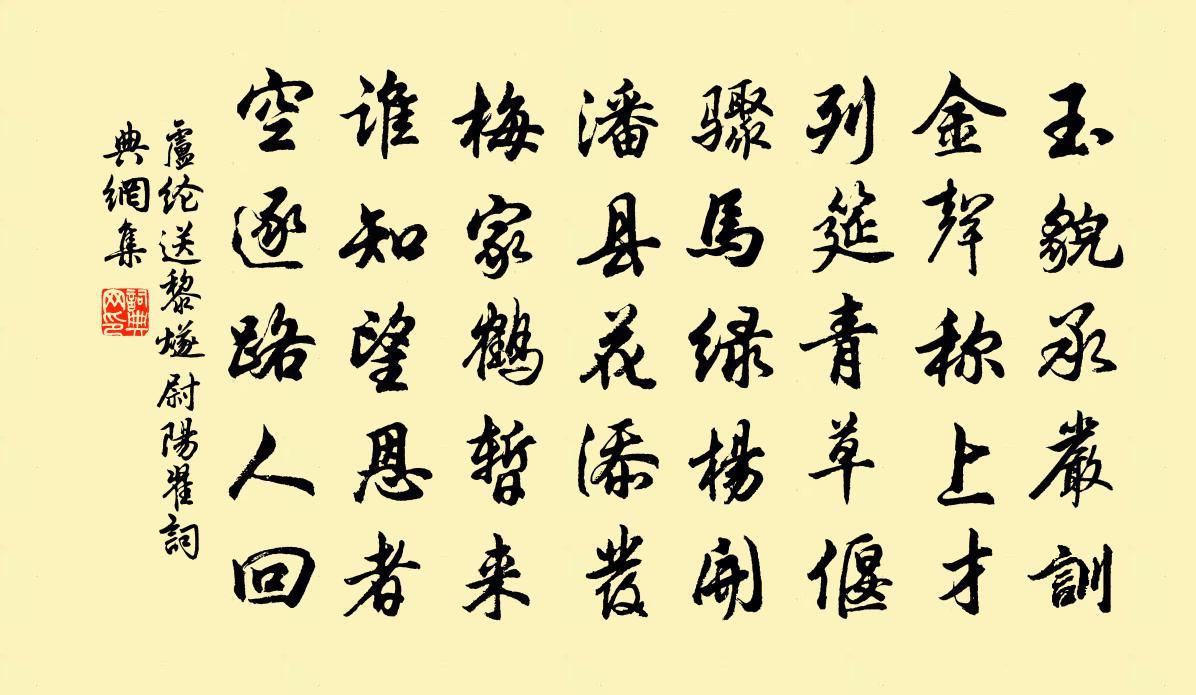 玉貌承嚴訓
金聲称上才
列筵青草偃
驟馬绿楊開
潘县花添發
梅家鶴暫来
谁知望恩者
空逐路人回
盧纶送黎燧尉陽翟詞
典網集
詞典
网印